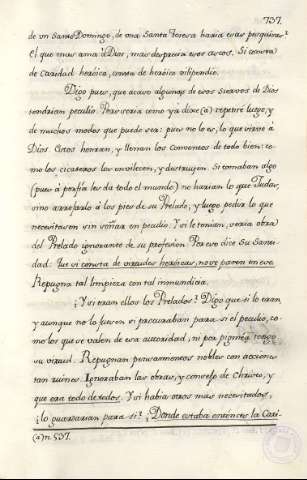 737.
de un Santo Domingo, de una Santa Teresa haria esas porquerias?
El que mas ama à Dios, mas desprecia esos ascos. Si consta
de Caridad heróica, consta de heróico vilipendio.
Digo pues, que acaso algunos de esos Siervos de Dios
tendrian peculio. Pero seria como ya dixe (a) repetiré luego, y
de muchos modos que puede ser: pues no lo es, lo que viene à
Dios. Estos honran, y llenan los Conventos de todo bien: co-
mo los cicateros los envilecen, y destruyen. Si tomaban algo
(pues à porfia les da todo el mundo) no harian lo que Judas,
sino arrojarlo à los pies de su Prelado; y luego pedir lo que
necesitasen sin soñar en peculio. Y si le tenian, seria obra
del Prelado ignorante de su profesion. Por eso dice su Santi-
dad: Que si consta de virtudes heróicas, no se paren en eso.
Repugna tal limpieza con tal inmundicia.
¿Y si eran ellos los Prelados? Digo que si lo eran,
y aunque no lo fuesen si procuraban para si el peculio, co-
mo los que se valen de esa autoridad, ni por
su virtud. Repugnan pensamientos nobles con acciones
tan ruines. Ignoraban las obras, y consejo de Christo, y
que era todo de todos. Y si habia otros mas necesitados,
¿lo guardarian para si? ¿Donde estaba entónces la Cari-
(a) n. 537.